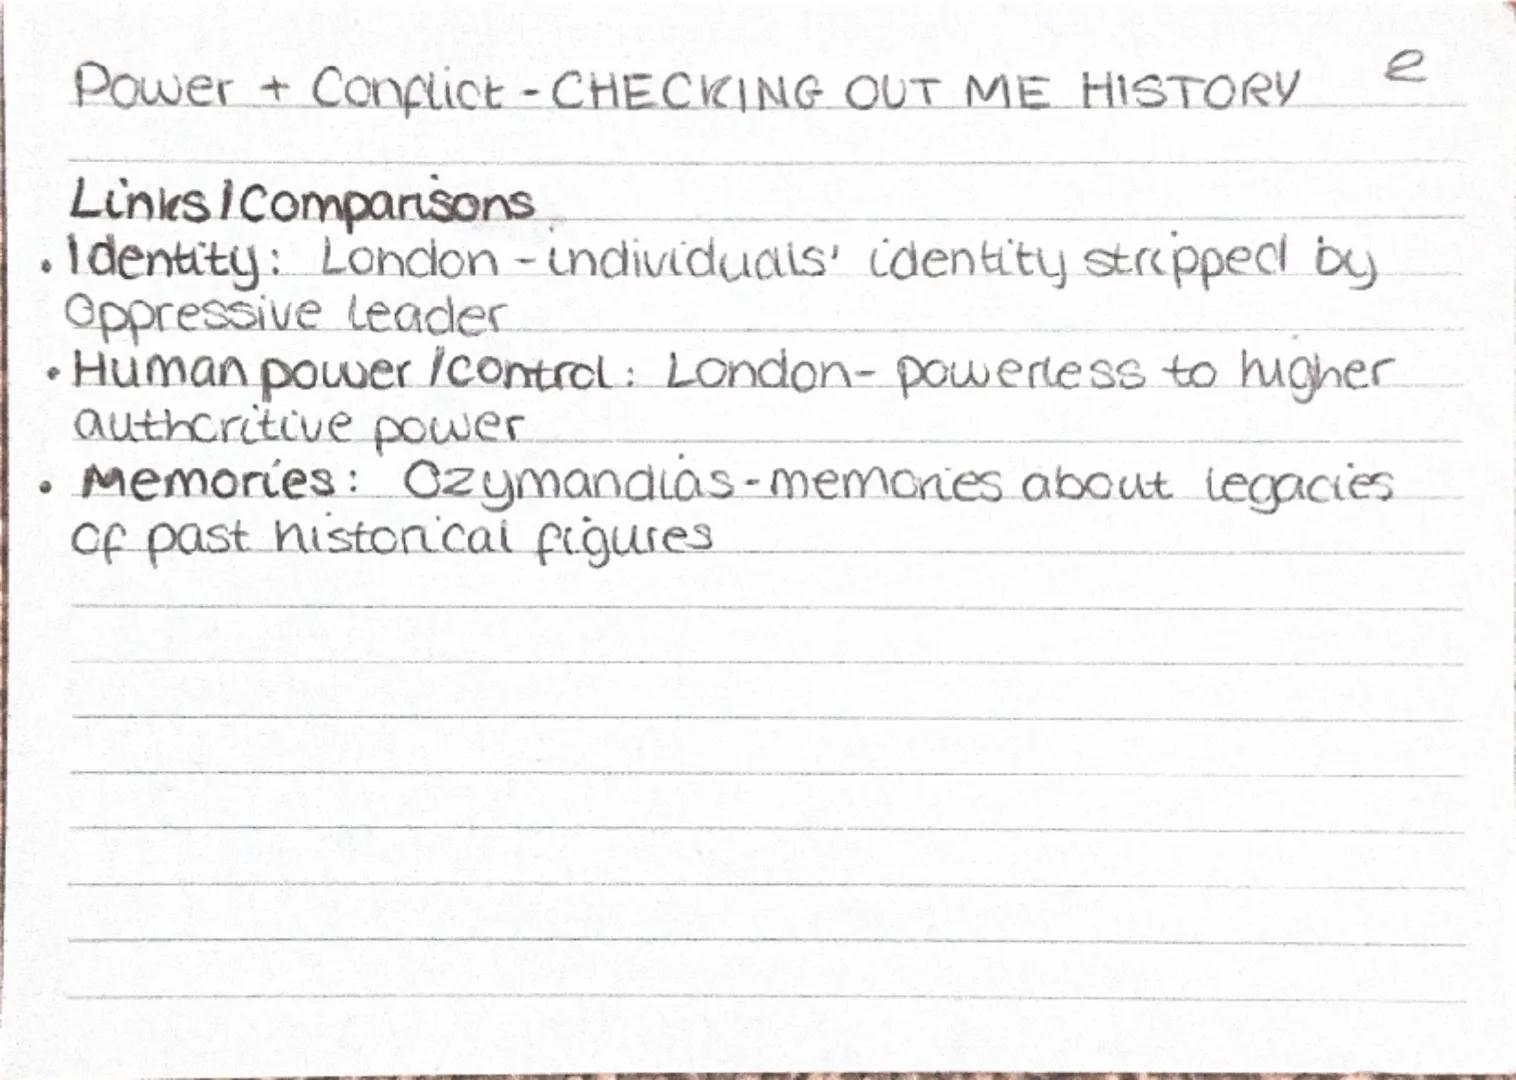 Power + Conflict - CHECKING OUT ME HISTORY e
Links/Comparisons
• Identity: London - individuals' identity stripped by
oppressive leader
• Human power / control: London - powerless to higher
authoritive power
• Memories: Ozymandias - memories about legacies
of past historical figures